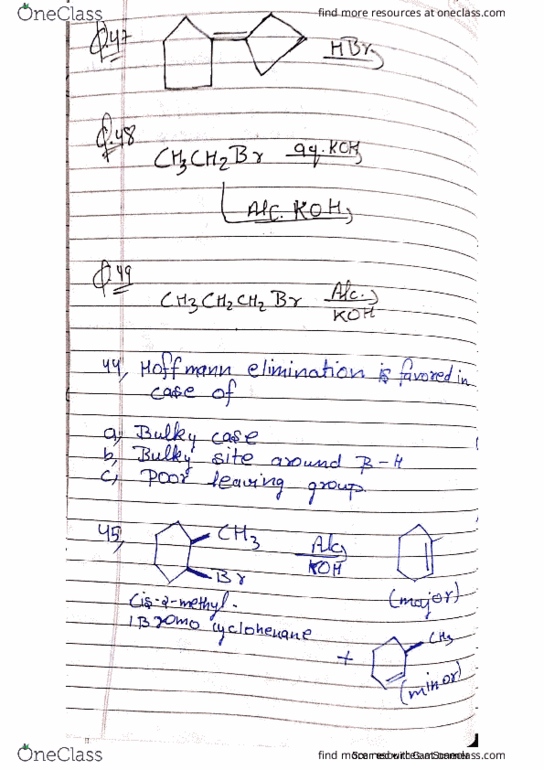 OneClass
find more resources at oneclass.com
Q.47
HBr
Q.48
CH3CH2Br aq. KOH
Alc. KOH
Q.49
CH3CH2CH2Br Alc. KOH
44, Hoffmann elimination is favored in
case of
a, Bulky case
b, Bulky site around B-H
c, Poor leaving group.
45, CH3
Br
Alc KOH
(major)
Cis-2-methyl-
1Bromo cyclohexane
+ CH3
(minor)
OneClass